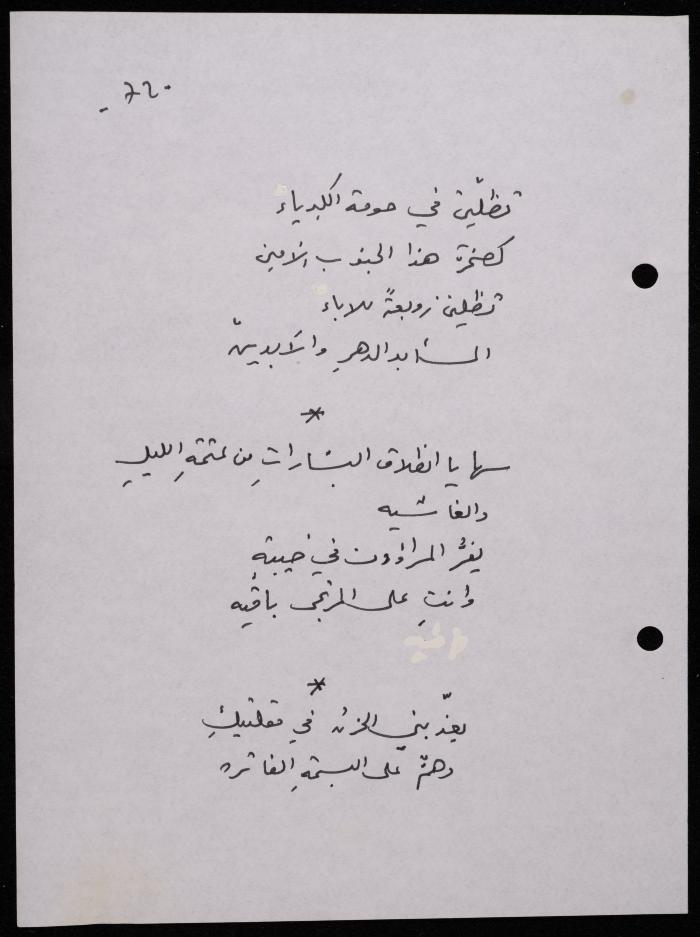 تظلّين في حومة الكبرياء
كصخرة هذا الجنوب الأمين
تظلين زوبعةً للاباء
الدهرِ والآبدينْ
*
سها يا انطلاق البشاراتِ من عتمةِ الليلِ
والغاشيه
يفرُّ المراؤون في خيبةٍ
وأنتِ على المرتجى باقيه
*
يعذّبني الحزن في مقلتيكِ
وهمٌّ على البسمةِ الفاتره